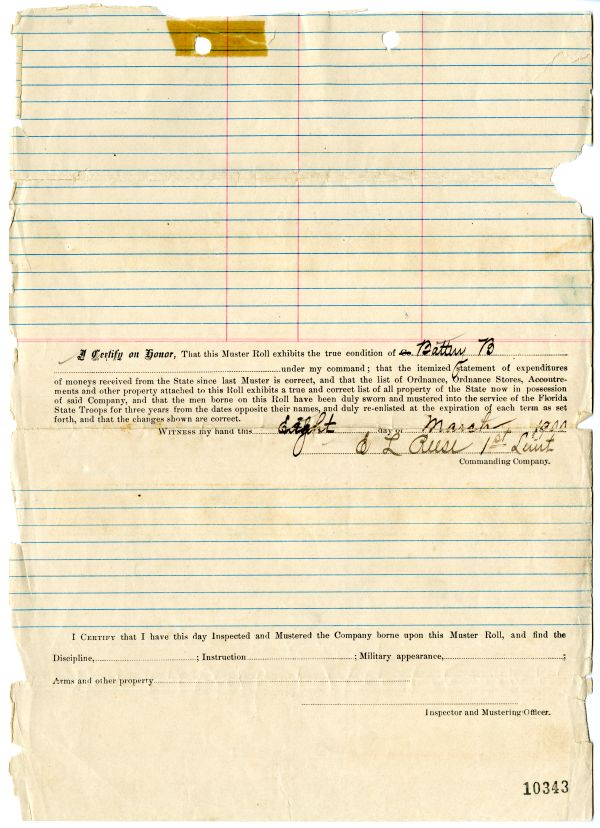 I Certify on Honor, That this Muster Roll exhibits the true condition of a Battery B
under my command; that the itemized statement of expenditures
of moneys received from the State since last Muster is correct, and that the list of Ordnance, Ordnance Stores, Accoutre-
ments and other property attached to this Roll exhibits a true and correct list of all property of the State now in possession
of said Company, and that the men borne on this Roll have been duly sworn and mustered into the service of the Florida
State Troops for three years from the dates opposite their names, and duly re-enlisted at the expiration of each term as set
forth, and that the changes shown are correct.
Witness my hand this Eight day of March 1900
E L Reese 1st Lieut
Commanding Company.
I Certify that I have this day Inspected and Mustered the Company borne upon this Muster Roll, and find the
Discipline, ; Instruction ; Military appearance, ;
Arms and other property
Inspector and Mustering Officer.
10343